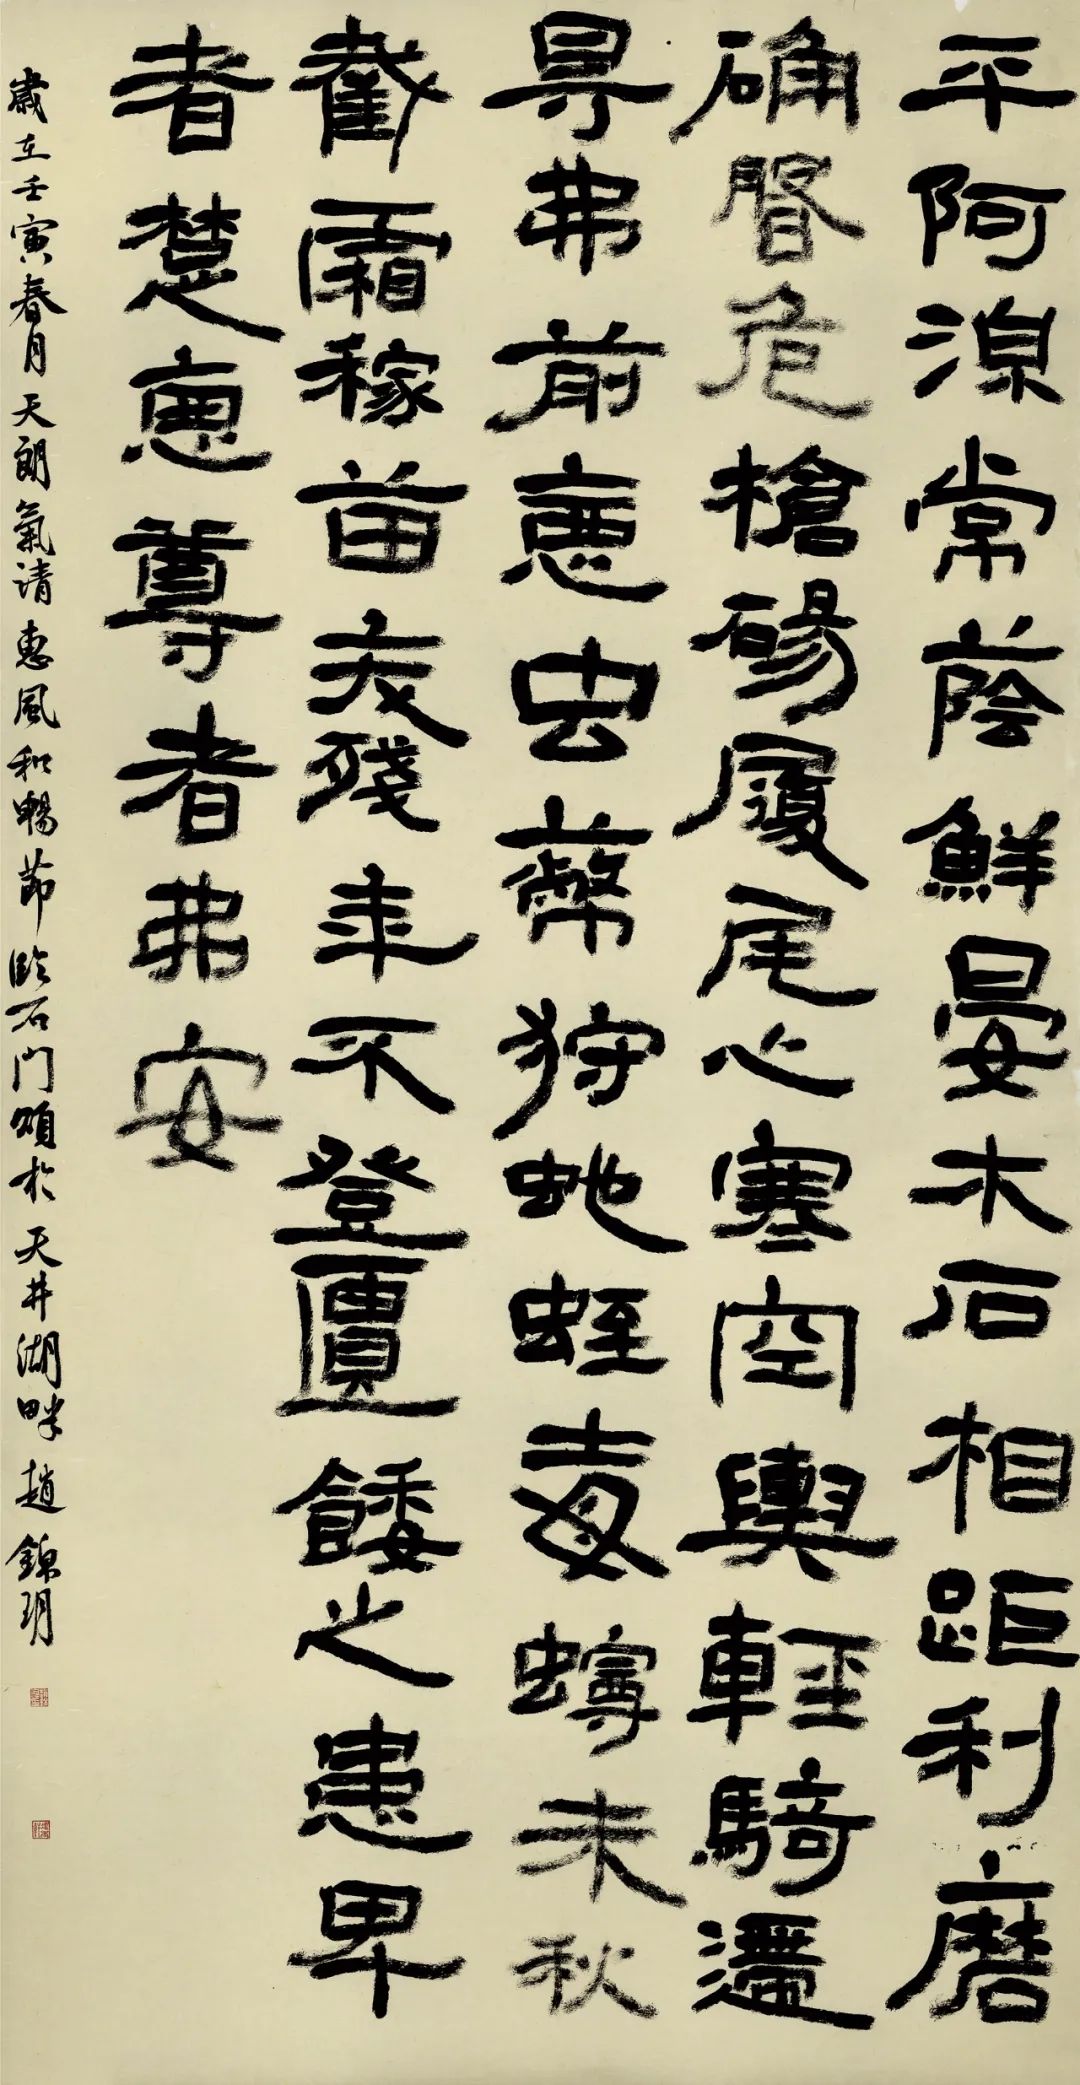 平阿湶常蔭鮮晏木石相距利磨
确臋危槍碭履尾心寒空輿輕騎遰
㝵弗前惡虫蔽狩虵蛭毒蟃未秋
截霜稼苗夭殘年不登匱餧之患卑
者楚惡尊者弗安
歲在壬寅春月天朗氣清惠風和暢節臨石門頌於天井湖畔趙錦玥